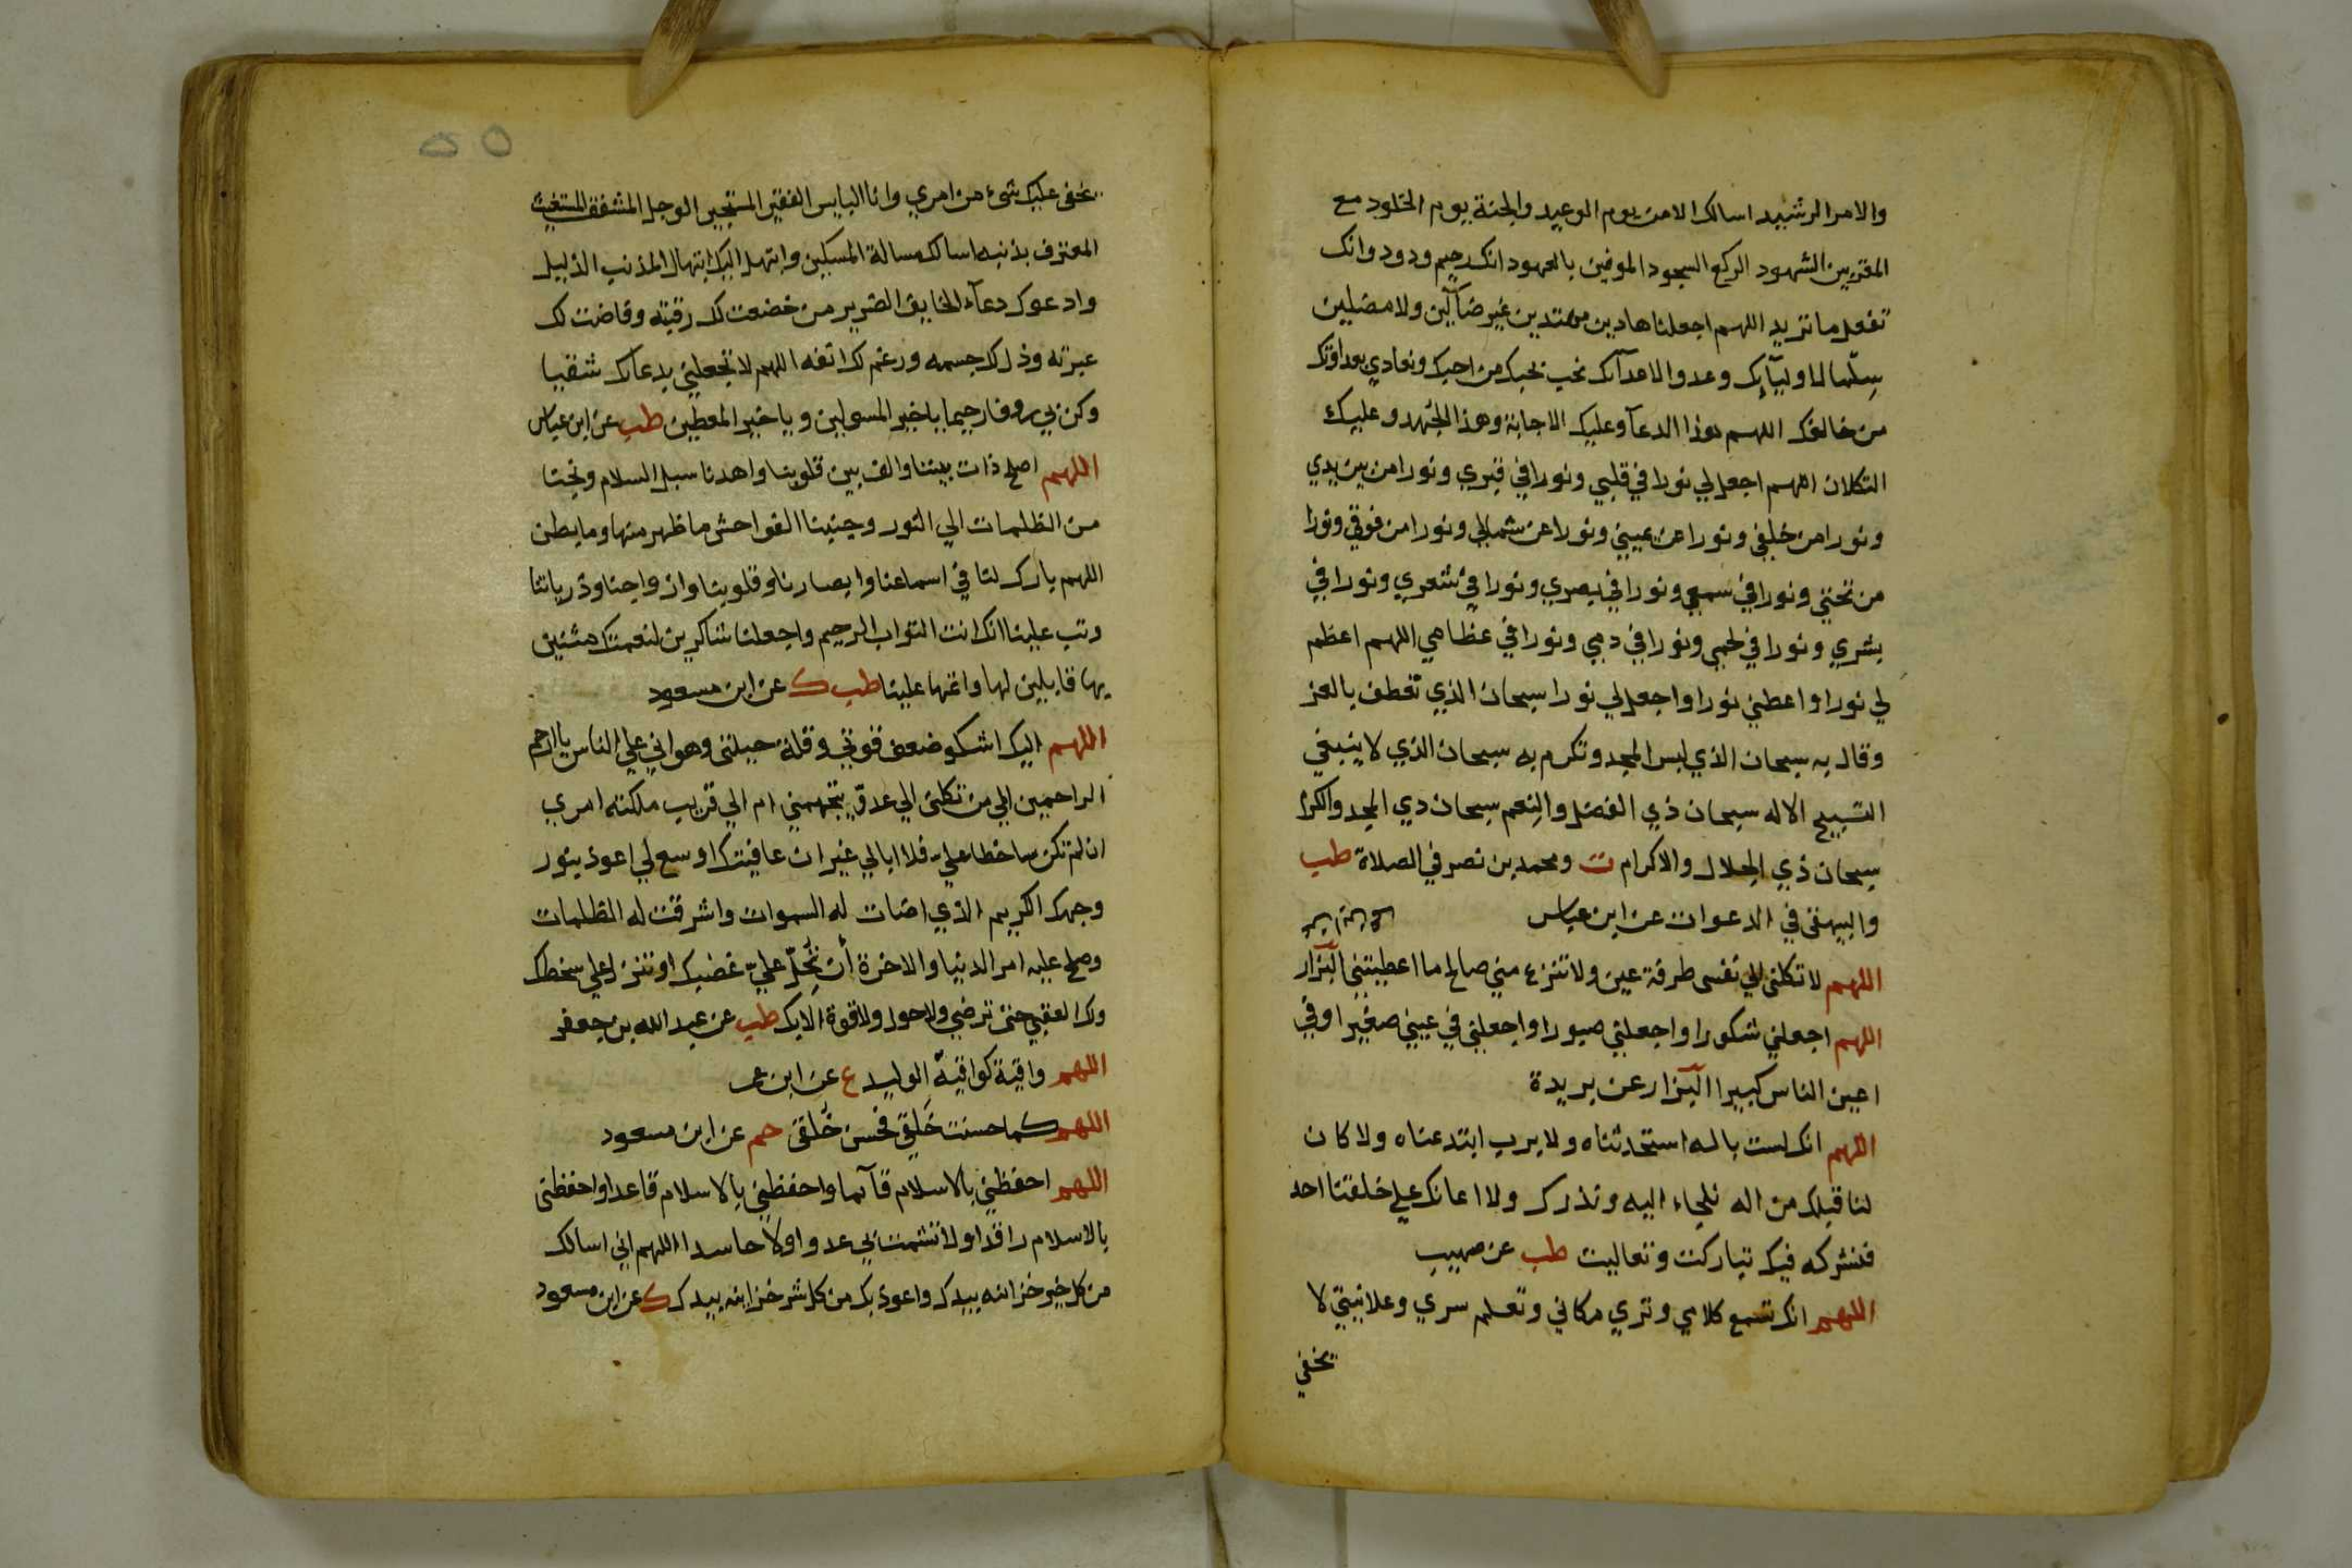 والامر الرشيد اسالك الامن يوم الوعيد والجنة يوم الخلود مع
المقربين الشهود الركع السجود الموفين بالعهود انك رحيم ودود وانك
تفعل ما تريد اللهم اجعلنا هادين مهتدين غير ضآلين ولا مضلين
سِلْما لاوليآيك وعدوا لاعدآئك نحب بحبك من احبك ونعادي بعداوتك
من خالفك اللهم هذا الدعآ وعليك الاجابة وهذا الجُهد وعليك
التكلان اللهم اجعل لي نورا في قلبي ونورا في قبري ونورا من بين يدي
ونورا من خلفي ونورا عن يميني ونورا عن شمالي ونورا من فوقي ونورا
من تحتي ونورا في سمعي ونورا في بصري ونورا في شعري ونورا في
بشري ونورا في لحمي ونورا في دمي ونورا في عظامي اللهم اعظم
لي نورا واعطني نورا واجعل لي نورا سبحان الذي تعطف بالعز
وقال به سبحان الذي لبس المجد وتكرم به سبحان الذي لا ينبغي
التسبيح الا له سبحان ذي الفضل والنِعم سبحان ذي المجد والكرم
سبحان ذي الجلال والاكرام ت ومحمد بن نصر في الصلاة طب
والبيهقي في الدعوات عن ابن عباس
اللهم لا تكلني الي نفسي طرفة عين ولا تنزع مني صالح ما اعطيتني البزار
اللهم اجعلني شكورا واجعلني صبورا واجعلني في عيني صغيرا وفي
اعين الناس كبيرا البزار عن بريدة
اللهم انك لست باله استحدثناه ولا برب ابتدعناه ولا كان
لنا قبلك من اله نلجاء اليه ونذرك ولا اعانك علي خلقنا احد
فنشركه فيك تباركت وتعاليت طب عن صهيب
اللهم انك تسمع كلامي وتري مكاني وتعلم سري وعلانيتي لا
يخفي
يخفى عليك شئ من امري وانا البايس الفقير المستجير الوجل المشفق المستغيث
المعترف بذنبه اسالك مسالة المسكين وابتهل اليك ابتهال المذنب الذليل
وادعوك دعآء الخايف الضرير من خضعت لك رقبته وفاضت لك
عبرته وذل لك جسمه ورغم لك انفه اللهم لا تجعلني بدعائك شقيا
وكن بي روفا رحيما يا خير المسولين ويا خير المعطين طب عن ابن عباس
اللهم اصلح ذات بيننا والف بين قلوبنا واهدنا سبل السلام ونجنا
من الظلمات الي النور وجنبنا الفواحش ما ظهر منها وما بطن
اللهم بارك لنا في اسماعنا وابصارنا وقلوبنا وازواجنا وذرياتنا
وتب علينا انك انت التواب الرحيم واجعلنا شاكرين لنعمتك مثنين
بها قابلين لها واتمها علينا طب ك عن ابن مسعود
اللهم اليك اشكو ضعف قوتي وقلة حيلتي وهواني علي الناس يا ارحم
الراحمين الي من تكلني الي عدوّ يتجهمني ام الي قريب ملكته امري
ان لم تكن ساخطا عليّ فلا ابالي غير ان عافيتك اوسع لي اعوذ بنور
وجهك الكريم الذي اضات له السموات واشرقت له الظلمات
وصلح عليه امر الدنيا والاخرة أن تُحِلّ عليّ غضبك او تنزل علي سخطك
ولك العقبي حتى ترضي ولا حول ولا قوة الا بك طب عن عبد الله بن جعفر
اللهم واقية كواقية الوليد ع عن ابن عمر
اللهم كما حسنت خَلقي فحسن خُلقي حم عن ابن مسعود
اللهم احفظني بالاسلام قآئما واحفظني بالاسلام قاعدا واحفظني
بالاسلام راقدا ولا تشمت بي عدوا ولا حاسدا اللهم اني اسالك
من كل خير خزائنه بيدك واعوذ بك من كل شر خزاينه بيدك ك عن ابن مسعود